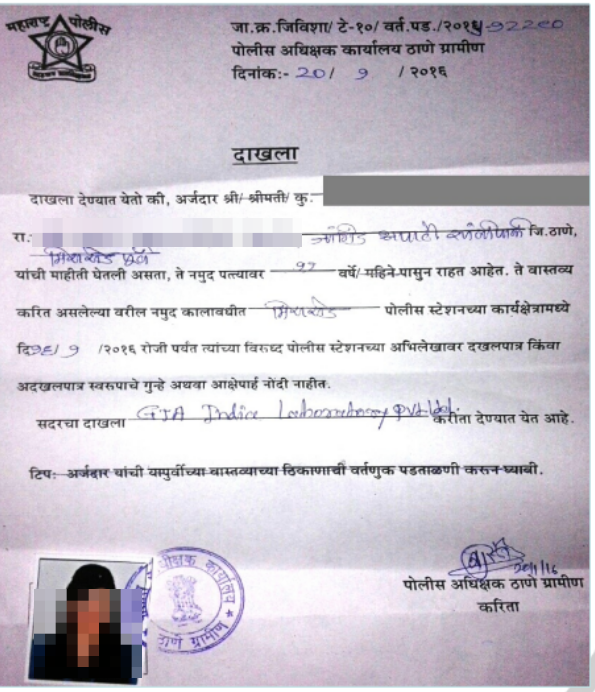 महाराष्ट्र पोलीस
जा.क्र.जिविशा/ टे-१०/ वर्त.पड./२०१६-९२२८०
पोलीस अधिक्षक कार्यालय ठाणे ग्रामीण
दिनांक:- 20/ 9 / २०१६
दाखला
दाखला देण्यात येतो की, अर्जदार श्री/ श्रीमती/ कु.
रा. जि.ठाणे,
यांची माहीती घेतली असता, ते नमुद पत्त्यावर १७ वर्षे/ महिने पासुन राहत आहेत. ते वास्तव्य
करित असलेल्या वरील नमुद कालावधीत मिरारोड पोलीस स्टेशनच्या कार्यक्षेत्रामध्ये
दि १६/ 9 /२०१६ रोजी पर्यत त्यांच्या विरुध्द पोलीस स्टेशनच्या अभिलेखावर दखलपात्र किंवा
अदखलपात्र स्वरुपाचे गुन्हे अथवा आक्षेपार्ह नोंदी नाहीत.
सदरचा दाखला GIA India Laboratory Pvt Ltd. करीता देण्यात येत आहे.
टिप:- अर्जदार यांची यापुर्वीच्या वास्तव्याच्या ठिकाणाची वर्तणुक पडताळणी करुन घ्यावी.
अधीक्षक कार्यालय
ठाणे ग्रामीण
पोलीस अधिक्षक ठाणे ग्रामीण
करिता